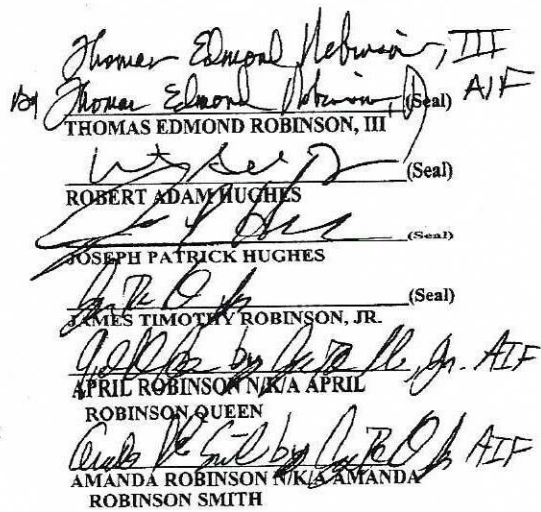 Thomas Edmond Robinson, III
By Thomas Edmond Robinson, Jr (Seal) AIF
THOMAS EDMOND ROBINSON, III
(Seal)
ROBERT ADAM HUGHES
(Seal)
JOSEPH PATRICK HUGHES
(Seal)
JAMES TIMOTHY ROBINSON, JR.
by Jr. AIF
APRIL ROBINSON N/K/A APRIL
ROBINSON QUEEN
by AIF
AMANDA ROBINSON N/K/A AMANDA
ROBINSON SMITH